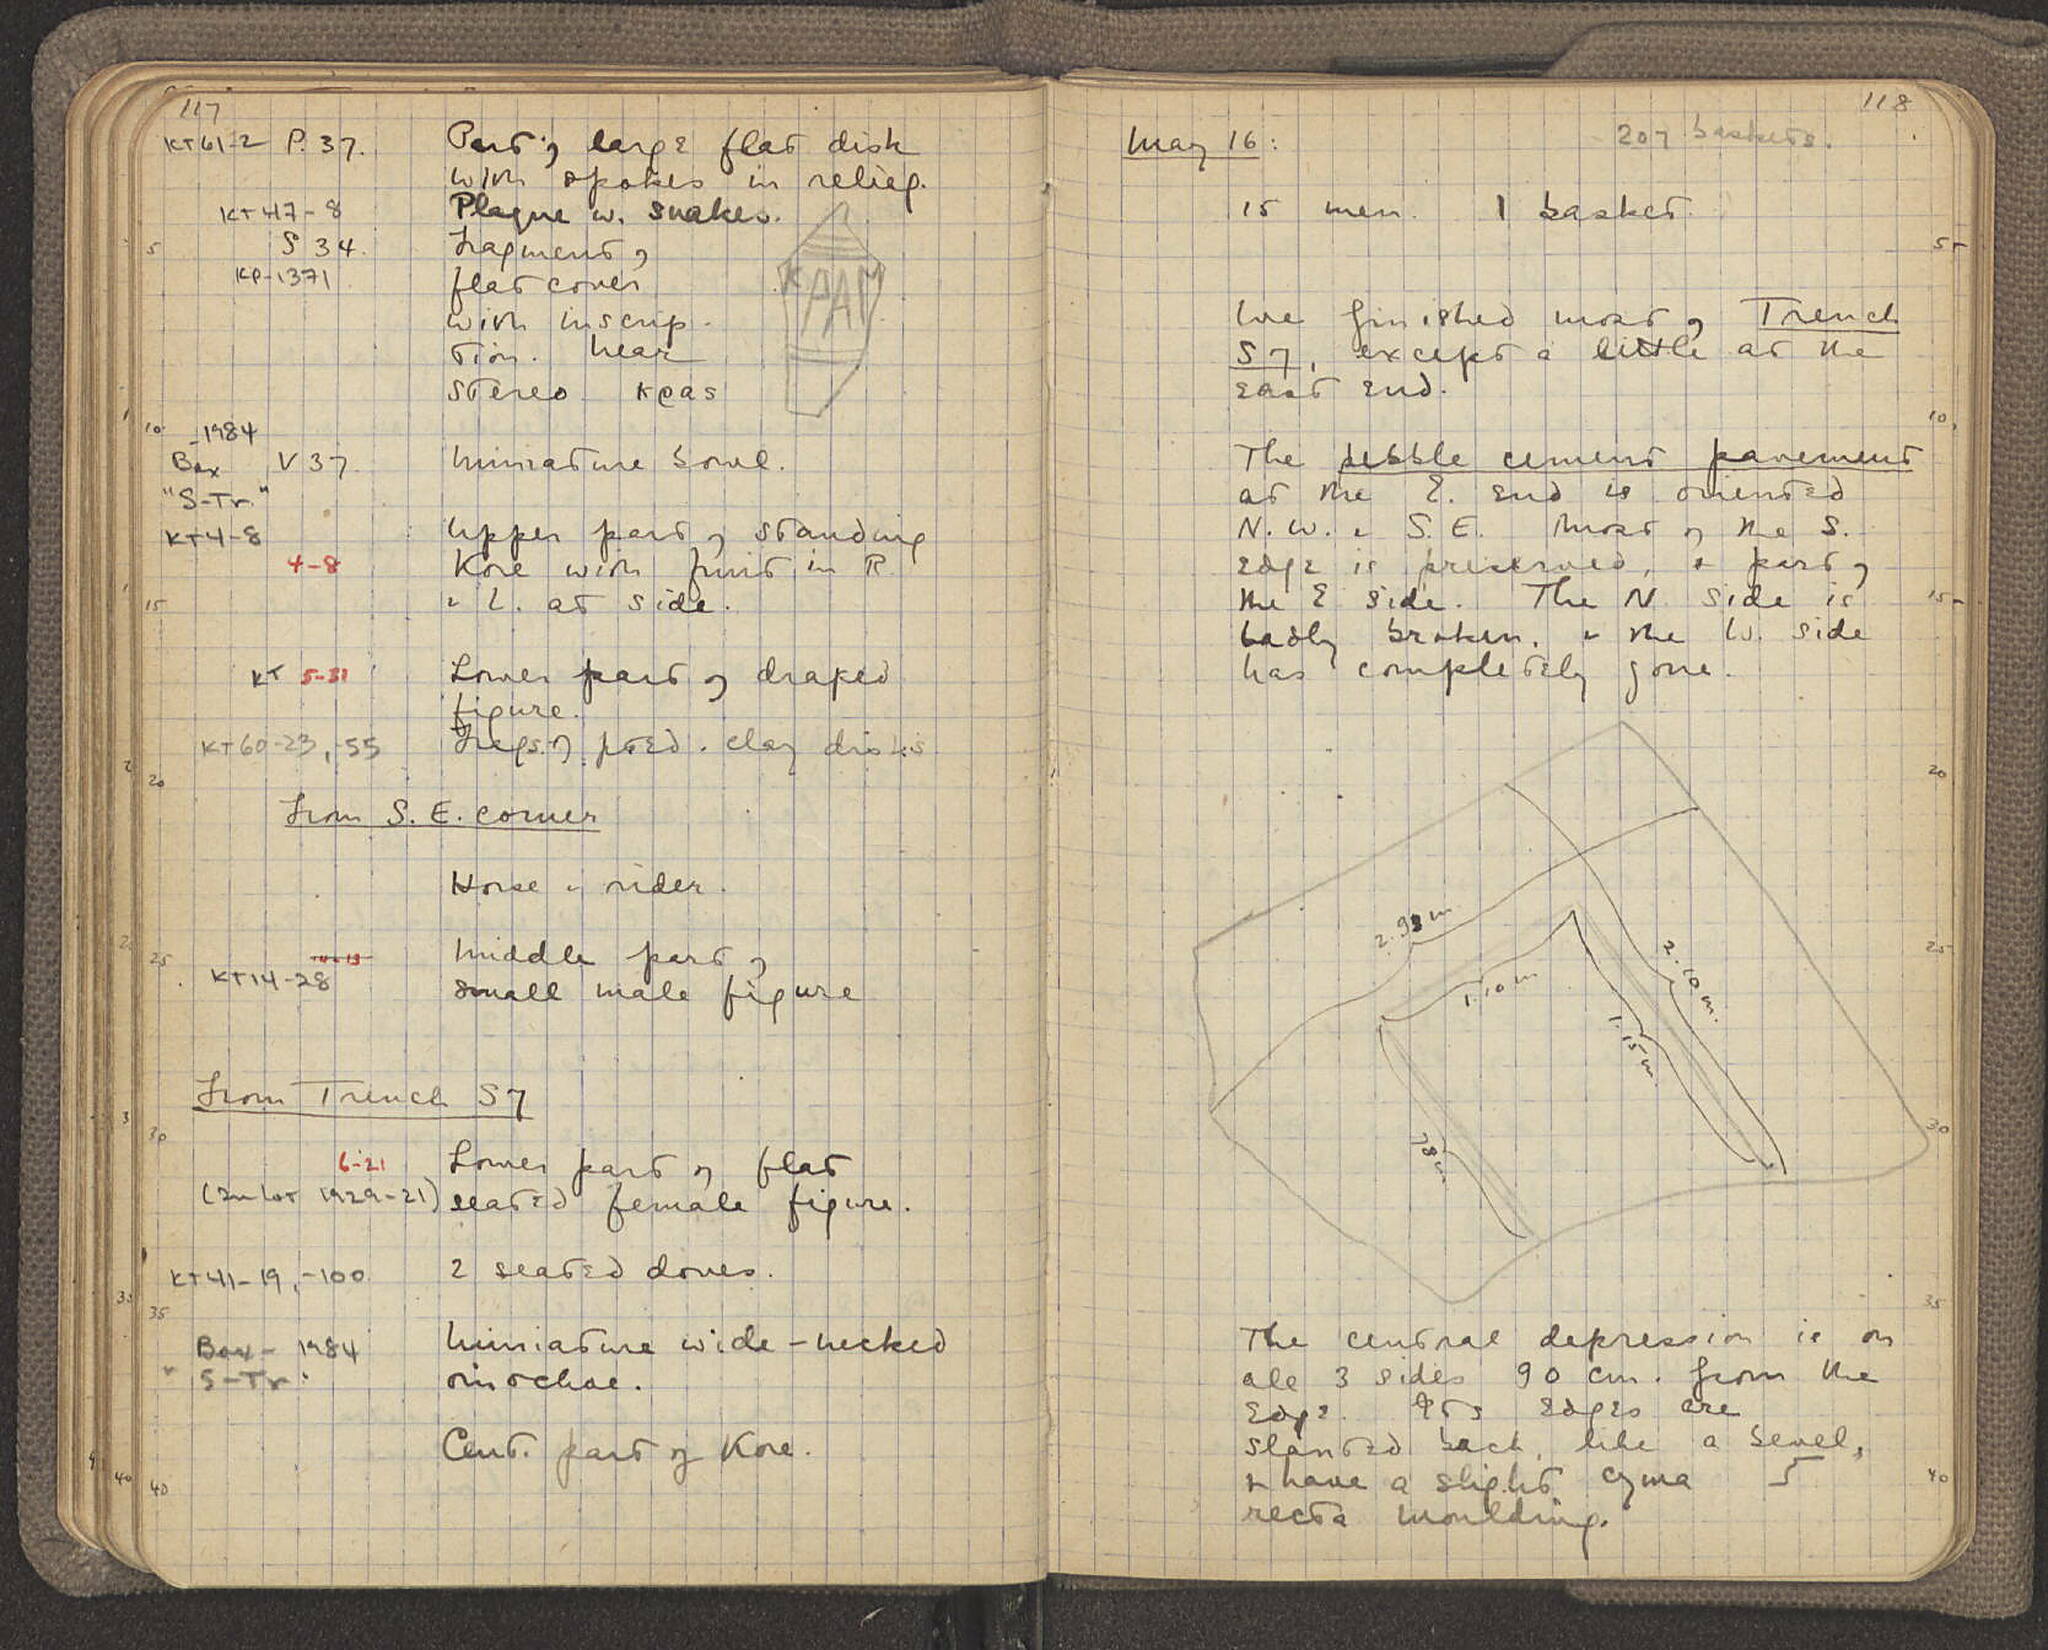 117
KT61-2 P. 37. Part of large flat disk
with spokes in relief.
KT47-8 Plaque w. snakes.
5 S 34. Fragment of
KP-1371 flat cover
with inscrip-
tion. near
stereo κρας
ΚΡΑΜ
10 -1984
Box V 37. Miniature bowl.
"S-Tr."
KT4-8 Upper part of standing
4-8 Kore with fruit in R.
15 & L. at side.
KT 5-31 Lower part of draped
figure.
KT60-23, -55 Frgs. of pted. clay disks
20
From S. E. corner
Horse & rider.
25 Middle part of
KT14-28 small male figure
From Trench S7
30
6-21 Lower part of flat
(In lot 1929-21) seated female figure.
KT41-19, -100 2 seated doves.
35
Box - 1984 Miniature wide-necked
"S-Tr." oinochoe.
Cent. part of Kore.
40
118
May 16: 207 baskets.
15 men. 1 basket.
5
We finished most of Trench
S7, except a little at the
east end.
10
The pebble cement pavement
at the E. end is oriented
N.W. & S.E. Most of the S.
edge is preserved, & part of
the E side. The N side is 15
badly broken, & the W. side
has completely gone.
20
2.98 m
25
2.10 m.
1.10 m
1.15 m.
30
78 m
35
The central depression is on
all 3 sides 90 cm. from the
edge. Its edges are
slanted back, like a bevel,
& have a slight cyma 40
recta moulding.